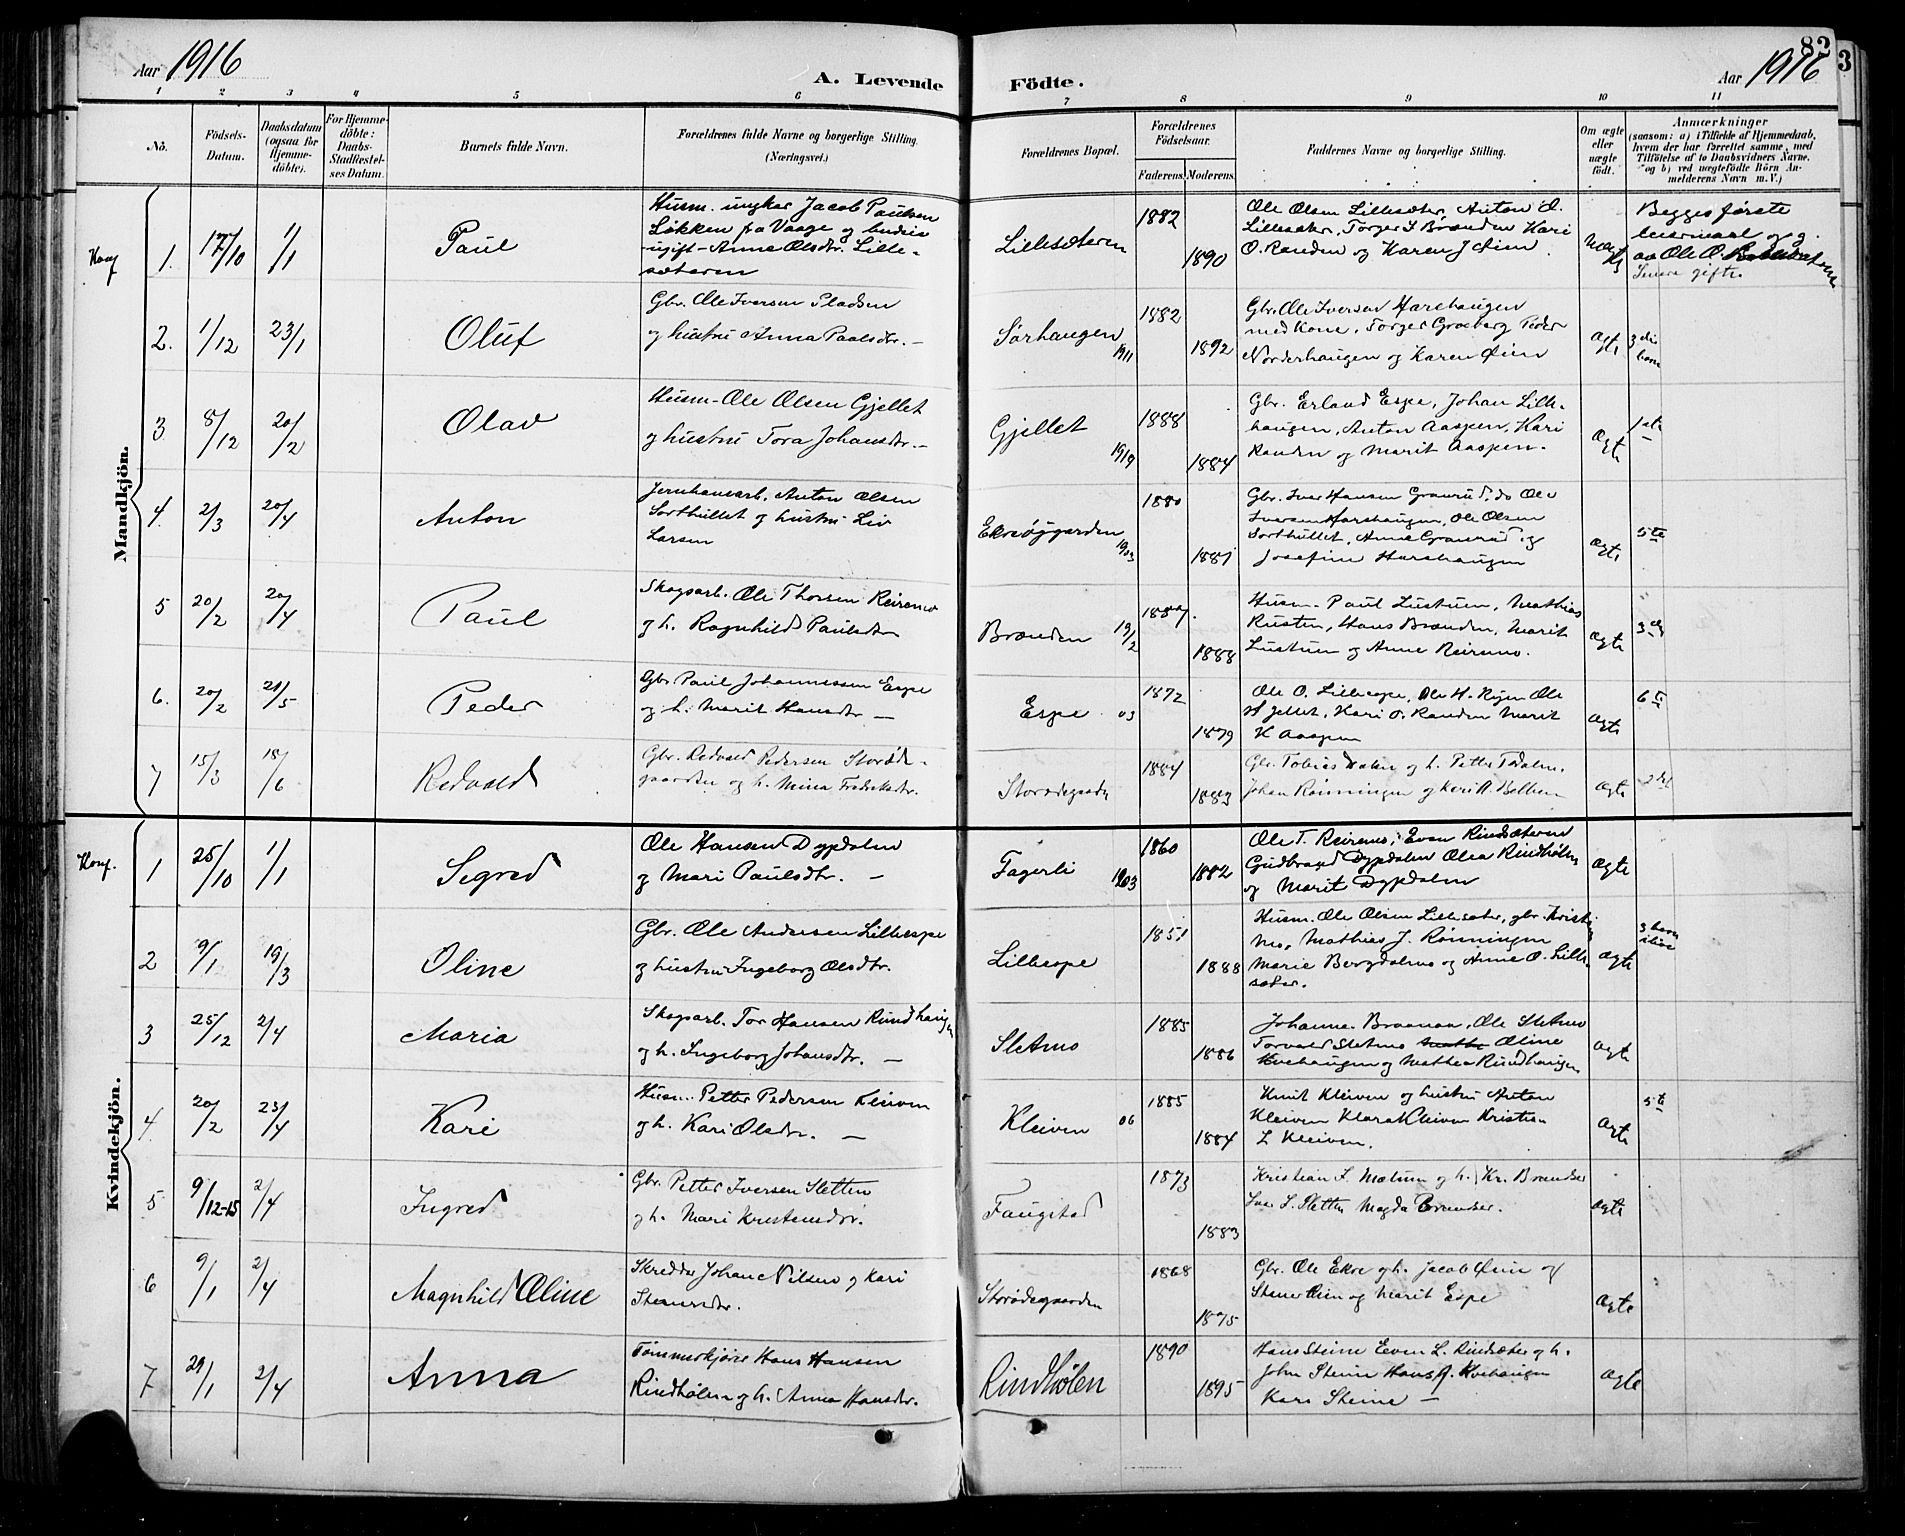 Aar 1916
A. Levende Födte.
Aar 1916
82
3
1 2 3 4 5 6 7 8 9 10 11
No.
Födsels-Datum.
Daabsdatum (ogsaa for Hjemme-döbte).
For Hjemme-döbte: Daabs-Stadfæstel-ses Datum.
Barnets fulde Navn.
Forældrenes fulde Navne og borgerlige Stilling. (Næringsvei.)
Forældrenes Bopæl.
Forældrenes Födselsaar.
Faderens. Moderens.
Faddernes Navne og borgerlige Stilling.
Om ægte eller uægte födt.
Anmærkninger
(saasom: a) i Tilfælde af Hjemmedaab, hvem der har forrettet samme, med Tilföielse af to Daabsvidners Navne, og b) ved uægtefödte Börn An-melderens Navn m. V.)
Mandkjön.
Konf
1. 17/10 1/1 Paul
Husm. ungkar Jacob Paulsen
Løkken fra Vaage og budeie
ugift Anne Olsdtr. Lille-
sæteren
Lillesæteren 1882 1890
Ole Olsen Lillesæter, Anton O.
Lillesæter, Torger S Brænden Kari
O. Randen og Karen J Øien
uægte
Begges første
leiermaal opg.
av Ole O.
Senere gifte.
2. 1/12 23/1 Oluf
Gbr. Ole Iversen Pladsen
og hustru Anna Paalsdtr. —
Sørhaugen 1911 1882 1892
Gbr. Ole Iversen Harshaugen
med Kone, Torger Graaberg Peder
Norderhaugen og Karen Øien
Ægte
3die barn
3 8/12 20/2 Olav
Husm. Ole Olsen Gjellet
og hustru Tora Johansdtr. —
Gjellet 1919 1888 1884
Gbr. Erland Espe, Johan Lill-
haugen, Anton Aaspen, Kari
Randen og Marit Aaspen.
Ægte
1ste
4. 2/3 20/4 Anton
Jernbanearb. Anton Olsen
Sorthullet og hustru Liv
Larsen
Ekreøygarden 1903 1880 1881
Gbr. Iver Hansen Granrud, do Ole
Iversen Harshaugen, Ole Olsen
Sorthullet, Anne Granrud og
Josefine Harshaugen
Ægte
5te
5 20/2 20/4 Paul
Skogsarb. Ole Thorsen Reiremo
og h. Ragnhild Paulsdtr
Brænden 19/2 1887. 1888
Husm. Paul Lustuen, Mathias
Rusten, Hans Brænden, Marit
Lustuen og Anne Reiremo.
Ægte
6. 20/2 21/5 Peder
Gbr Paul Johannessen Espe
og h. Marit Hansdtr —
Espe 03 1872 1879
Ole O. Lilleespe, Ole H. Rygen Ole
H Gjellet, Kari O. Randen Marit
H Aaspen
Ægte
6te
7 15/3 18/6 Redvald
Gbr. Redvald Pedersen Storøde-
gaarden og h. Mina Fredriksdtr.
Storødegaarden 1884 1883
Gbr. Tobias Dalen og h. Petter Todalen.
Johan Rønningen og Kari A. Bolken
Ægte
2det
Kvindekjön.
Konf.
1 25/10 1/1 Segred
Ole Hansen Dypdalen
og Mari Paulsdtr. —
Fagerli 1903 1860 1882
Ole T. Reiremo, Even Rindsæteren
Gudbrand Dypdalen Olea Rindhølen
og Marit Dypdalen
Ægte
2 9/1 19/3 Oline
Gbr. Ole Andersen Lilleespe
og hustru Ingeborg Olsdtr.
Lilleespe 1851 1888
Husm. Ole Olsen Lillesæter, gbr. Kristen
Mo, Mathias J. Rønningen
Marie Bergdalmo og Anne O. Lille-
sæter.
Ægte
3 barn ilive
3 25/12 2/4 Maria
Skogsarb. Tor Hansen Rindhaugen
og h. Ingeborg Johansdtr. —
Sletmo 1885 1886
Johanne Braanan, Ole Sletmo
Torvald Sletmo Oline
Kvehaugen og Mathea Rindhaugen
Ægte
4 20/2 23/4 Kari
Husm. Petter Pedersen Kleiven
og h. Kari Olsdtr. —
Kleiven 06 1885 1884
Knut Kleiven og hustru Anton
Kleiven Klara Kleiven Kristian
L Kleiven.
Ægte
5te
5 9/12-15 2/4 Ingred
Gbr. Petter Iversen Sletten
og h. Mari Kristensdtr.
Faugstad 1873 1883
Kristian I. Mælum og h. Kr. Brændser
Iver I. Sletten Magda Brændser.
Ægte
6 9/1 2/4 Magnhild Oline
Skredder Johan Nilsen og Kari
Stensdtr.
Storødegaarden 1868 1875
Gbr. Ole Ekre og h. Jacob Øien og
Stener Øien og Marit Espe
Ægte
7 29/1 2/4 Anna
Tømmerkjører Hans Hansen
Rindhølen og h. Anna Hansdtr.
Rindhølen 1890 1895
Hans Steine Even L. Rindsæter og h.
John Steine Hans J. Kvehaugen
Kari Steine —
Ægte